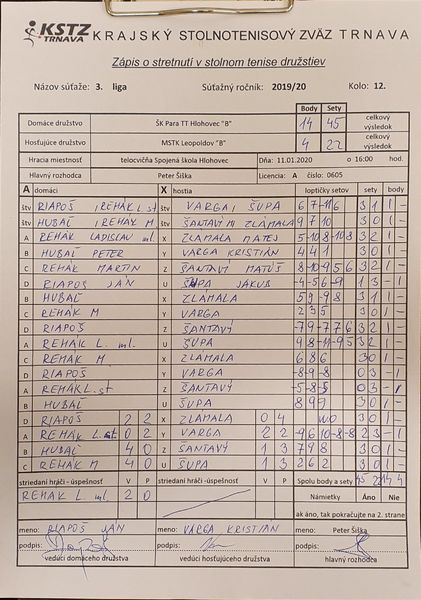 KSTZ TRNAVA KRAJSKÝ STOLNOTENISOVÝ ZVÄZ TRNAVA
Zápis o stretnutí v stolnom tenise družstiev
Názov súťaže: 3. liga Súťažný ročník: 2019/20 Kolo: 12.
Body Sety
Domáce družstvo ŠK Para TT Hlohovec "B" 14 45 celkový výsledok
Hosťujúce družstvo MŠTK Leopoldov "B" 4 22 celkový výsledok
Hracia miestnosť telocvičňa Spojená škola Hlohovec Dňa: 11.01.2020 o 16:00 hod.
Hlavný rozhodca Peter Šiška Licencia: A číslo: 0605
A domáci X hostia loptičky setov sety body
štv RIAPOŠ REHÁK L. st štv VARGA ŠUPA 6 7 -11 6 3 1 1 -
štv HUBAČ REHÁK M štv ŠANTAVÝ ZLÁMALA 9 7 10 3 0 1 -
A REHÁK LADISLAV ml. X ZLÁMALA MATEJ 5 -10 8 -10 8 3 2 1 -
B HUBAČ PETER Y VARGA KRISTIÁN 4 4 1 3 0 1 -
C REHÁK MARTIN Z ŠANTAVÝ MATÚŠ 8 -10 9 -5 6 3 2 1 -
D RIAPOŠ JÁN U ŠUPA JAKUB -4 -5 6 -9 1 3 - 1
B HUBAČ X ZLÁMALA 5 9 -9 8 3 1 1 -
C REHÁK M Y VARGA 2 3 5 3 0 1 -
D RIAPOŠ Z ŠANTAVÝ -7 9 -7 7 6 3 2 1 -
A REHÁK L. ml. U ŠUPA 9 8 -11 -9 5 3 2 1 -
C REHÁK M. X ZLÁMALA 6 8 6 3 0 1 -
D RIAPOŠ Y VARGA -8 -9 -8 0 3 - 1
A REHÁK L. st Z ŠANTAVÝ -5 -8 -5 0 3 - 1
B HUBAČ U ŠUPA 8 9 7 3 0 1 -
D RIAPOŠ 2 2 X ZLÁMALA 0 4 WO 3 0 1 -
A REHÁK L. st 0 2 Y VARGA 2 2 -9 6 10 -8 -8 2 3 - 1
B HUBAČ 4 0 Z ŠANTAVÝ 1 3 7 9 8 3 0 1 -
C REHÁK M 4 0 U ŠUPA 1 3 2 6 2 3 0 1 -
striedaní hráči - úspešnosť V P striedaní hráči - úspešnosť V P Spolu body a sety 45 22 14 4
REHÁK L. ml. 2 0 Námietky Áno Nie
ak áno, tak pokračujte na 2. strane
meno: RIAPOŠ JÁN meno: VARGA KRISTIÁN meno: Peter Šiška
podpis: podpis: podpis:
vedúci domáceho družstva vedúci hosťujúceho družstva hlavný rozhodca